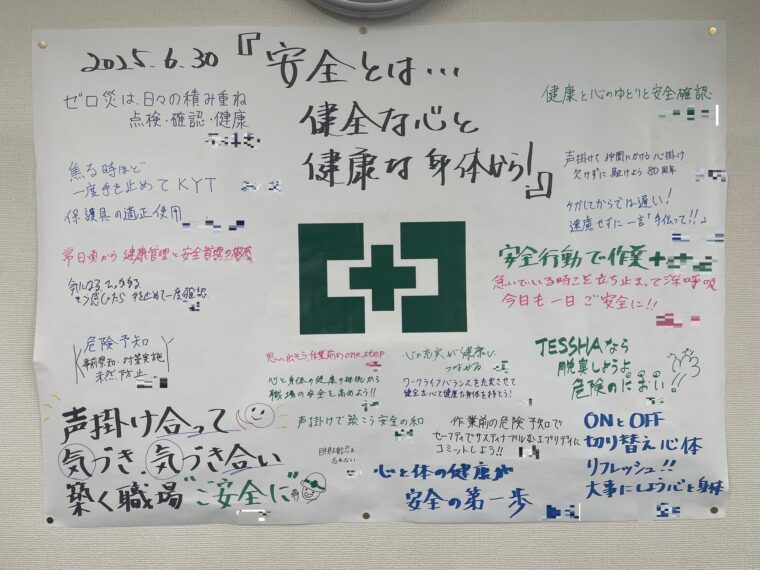 2025.6.30
『安全とは…
健全な心と
健康な身体から!』
ゼロ災は、日々の積み重ね
点検・確認・健康
焦る時ほど
一度手を止めて KYT
保護具の適正使用
常日頃から 健康管理と安全管理の
手を止めて一度確認
危険予知
事前察知・対策実施
未然防止
声掛け合って
気づき・気づき合い
築く職場“ご安全に”
健康と心のゆとりと安全確認
声掛けて 仲間にかける 心掛け
欠けずに 駆けよう 80周年
ケガしてからでは遅い!
遠慮せずに一言「手伝って!!」
安全行動で作業
急いでいる時こそ立ち止まって深呼吸
今日も一日 ご安全に!!
思い出そう作業前のone step
心と身体の健康の維持から
職場の安全も高めよう!!
声掛けで築こう安全の和
心の充実が健康に
つながる
ワークライフバランスを充実させて
健全な心で健康な身体を持とう!
TESSHAなら
脱臭しようよ
危険のにおい!!
作業前の危険予知で
セーフティでサスティナブルなエブリデイに
コミットしよう!!
心と体の健康が
安全の第一歩
ONとOFF
切り替え心体
リフレッシュ!!
大事にしよう心と身体